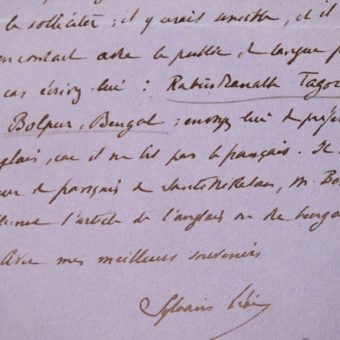 le solliciter ; il y serait sensible, et il
en contact avec le public de langue f
cas écrivez lui : Rabindranath Tagor
Bolpur, Bengal ; envoyez lui de préf
nglais, car il ne lit pas le français. Il
eur de français de Santiniketan, M. Be
l'article de l'anglais ou du benga
Avec mes meilleurs souvenirs
Sylvain Lévi